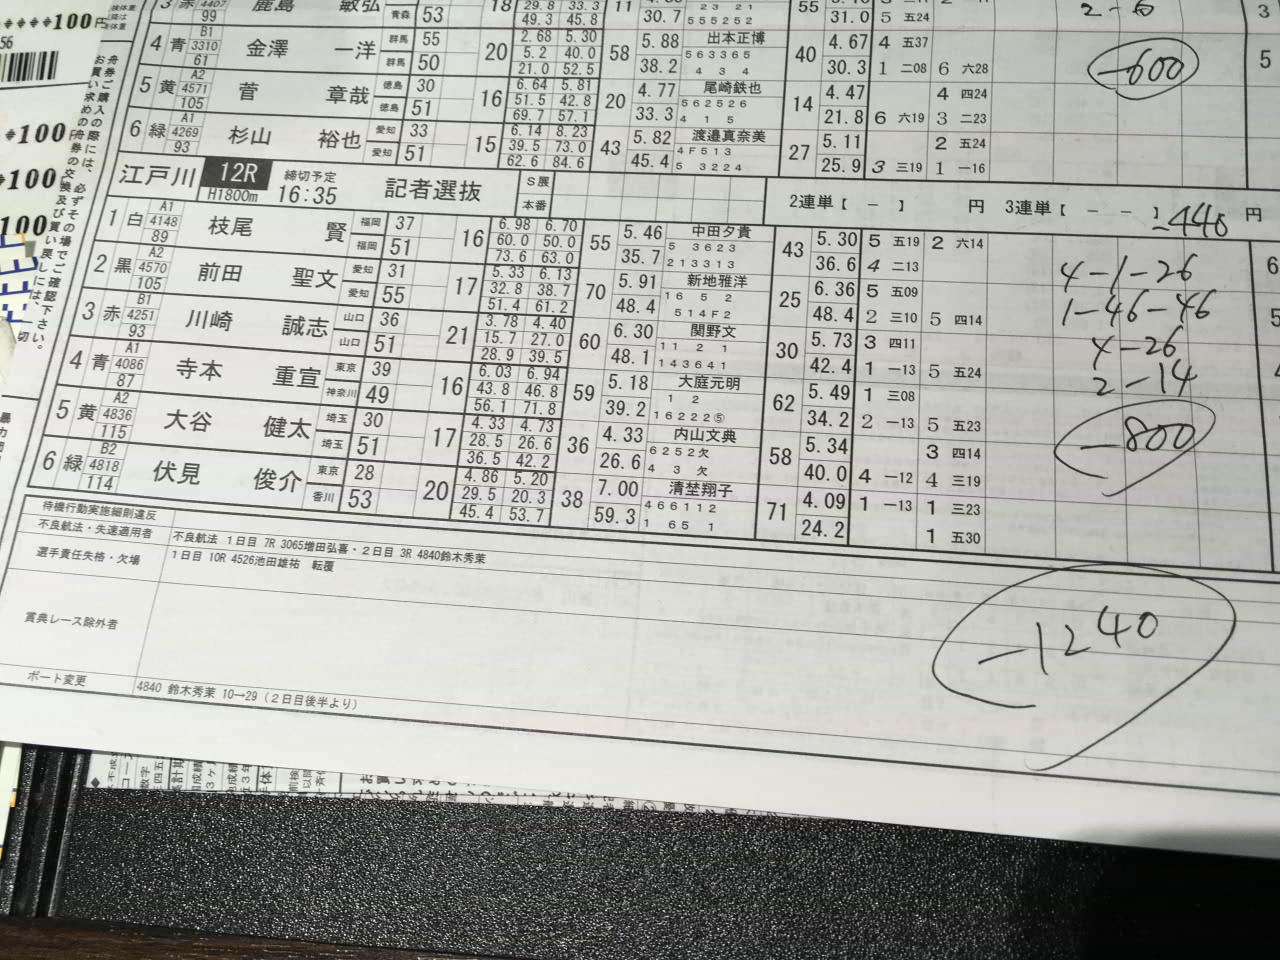 99 青森 53 18 49.3 45.8 30.7 555252 31.0 5 五24
4 青 B1 3310 61 金澤 一洋 群馬 群馬 55 50 20 2.68 5.30 5.2 40.0 21.0 52.5 58 5.88 38.2 出本正博 563365 4 3 4 40 4.67 30.3 4 五37 1 二08 6 六28
-600
5 黄 A2 4571 105 菅 章哉 徳島 徳島 30 51 16 6.64 5.81 51.5 42.8 69.7 57.1 20 4.77 33.3 尾崎鉄也 562526 4 1 5 14 4.47 21.8 6 六19 4 四24 3 二23
6 緑 A1 4269 93 杉山 裕也 愛知 愛知 33 51 15 6.14 8.23 39.5 73.0 62.6 84.6 43 5.82 45.4 渡邉真奈美 4F513 5 3224 27 5.11 25.9 3 三19 2 五24 1 一16
江戸川 12R H1800m 締切予定 16:35 記者選抜 S展 本番 2連単【 － 】 円 3連単【 － － 】 円
-440
1 白 A1 4148 89 枝尾 賢 福岡 福岡 37 51 16 6.98 6.70 60.0 50.0 73.6 63.0 55 5.46 35.7 中田夕貴 5 3623 213313 43 5.30 36.6 5 五19 4 二13 2 六14
2 黒 A2 4570 105 前田 聖文 愛知 愛知 31 55 17 5.33 6.13 32.8 38.7 51.4 61.2 70 5.91 48.4 新地雅洋 16 5 2 514F2 25 6.36 48.4 5 五09 2 三10 5 四14
3 赤 B1 4251 93 川崎 誠志 山口 山口 36 51 21 3.78 4.40 15.7 27.0 28.9 39.5 60 6.30 48.1 関野文 11 2 1 143641 30 5.73 42.4 3 四11 1 一13 5 五24
4 青 A1 4086 87 寺本 重宣 東京 神奈川 39 49 16 6.03 6.94 43.8 46.8 56.1 71.8 59 5.18 39.2 大庭元明 1 2 16222⑤ 62 5.49 34.2 1 三08 2 一13 5 五23
5 黄 A2 4836 115 大谷 健太 埼玉 埼玉 30 51 17 4.33 4.73 28.5 26.6 36.5 42.2 36 4.33 26.6 内山文典 6252欠 4 3 欠 58 5.34 40.0 4 一12 3 四14 4 三19
6 緑 B2 4818 114 伏見 俊介 東京 香川 28 53 20 4.86 5.20 29.5 20.3 45.4 53.7 38 7.00 59.3 清埜翔子 466112 1 65 1 71 4.09 24.2 1 一13 1 三23 1 五30
4-1-26
1-46-46
4-26
2-14
-800
待機行動実施細則違反
不良航法・失速適用者 不良航法 1日目 7R 3065増田弘喜・2日目 3R 4840鈴木秀茉
選手責任失格・欠場 1日目 10R 4526池田雄祐 転覆
賞典レース除外者
ボート変更 4840 鈴木秀茉 10→29（2日目後半より）
-1240
100円
舟券ご購入の際には、必ずその場でご確認下さい。
お買い求めの舟券の交換及び買い戻しには、